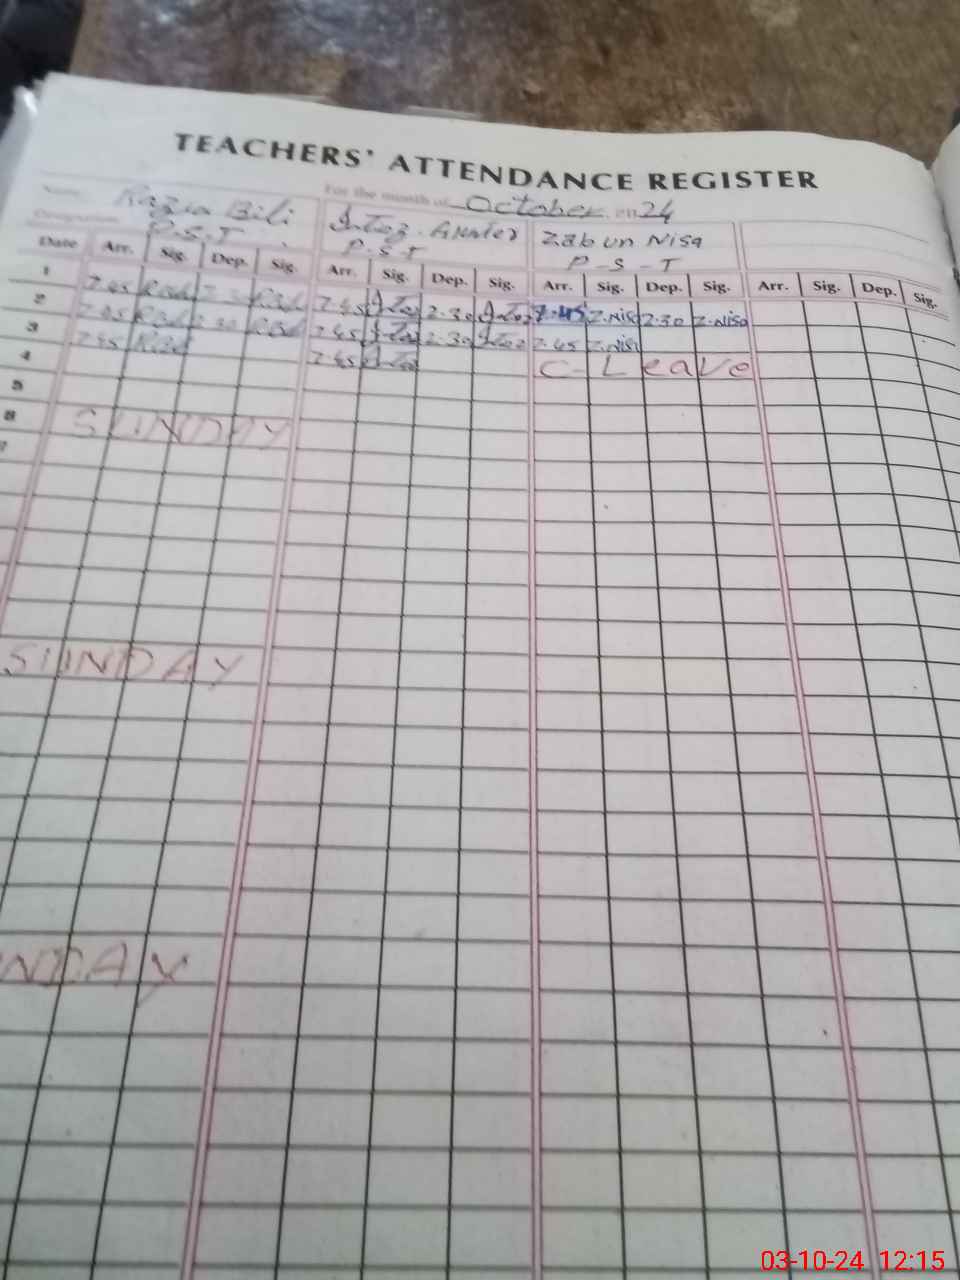 TEACHERS' ATTENDANCE REGISTER
Name Razia Bibi For the month of October 2024
Designation P.S.T P.S.T Zab un Nisa
P-S-T
Date Arr. Sig. Dep. Sig. Arr. Sig. Dep. Sig. Arr. Sig. Dep. Sig. Arr. Sig. Dep. Sig.
1 7.45 7.45 2.30 7.45 Z.Nisa 2.30 Z.Nisa
2 7.45 2.30 7.45 2.30 7.45 Z.Nisa
3 7.45 7.45 C-Leave
4
5
6 SUNDAY
7
SUNDAY
NDAY
03-10-24 12:15